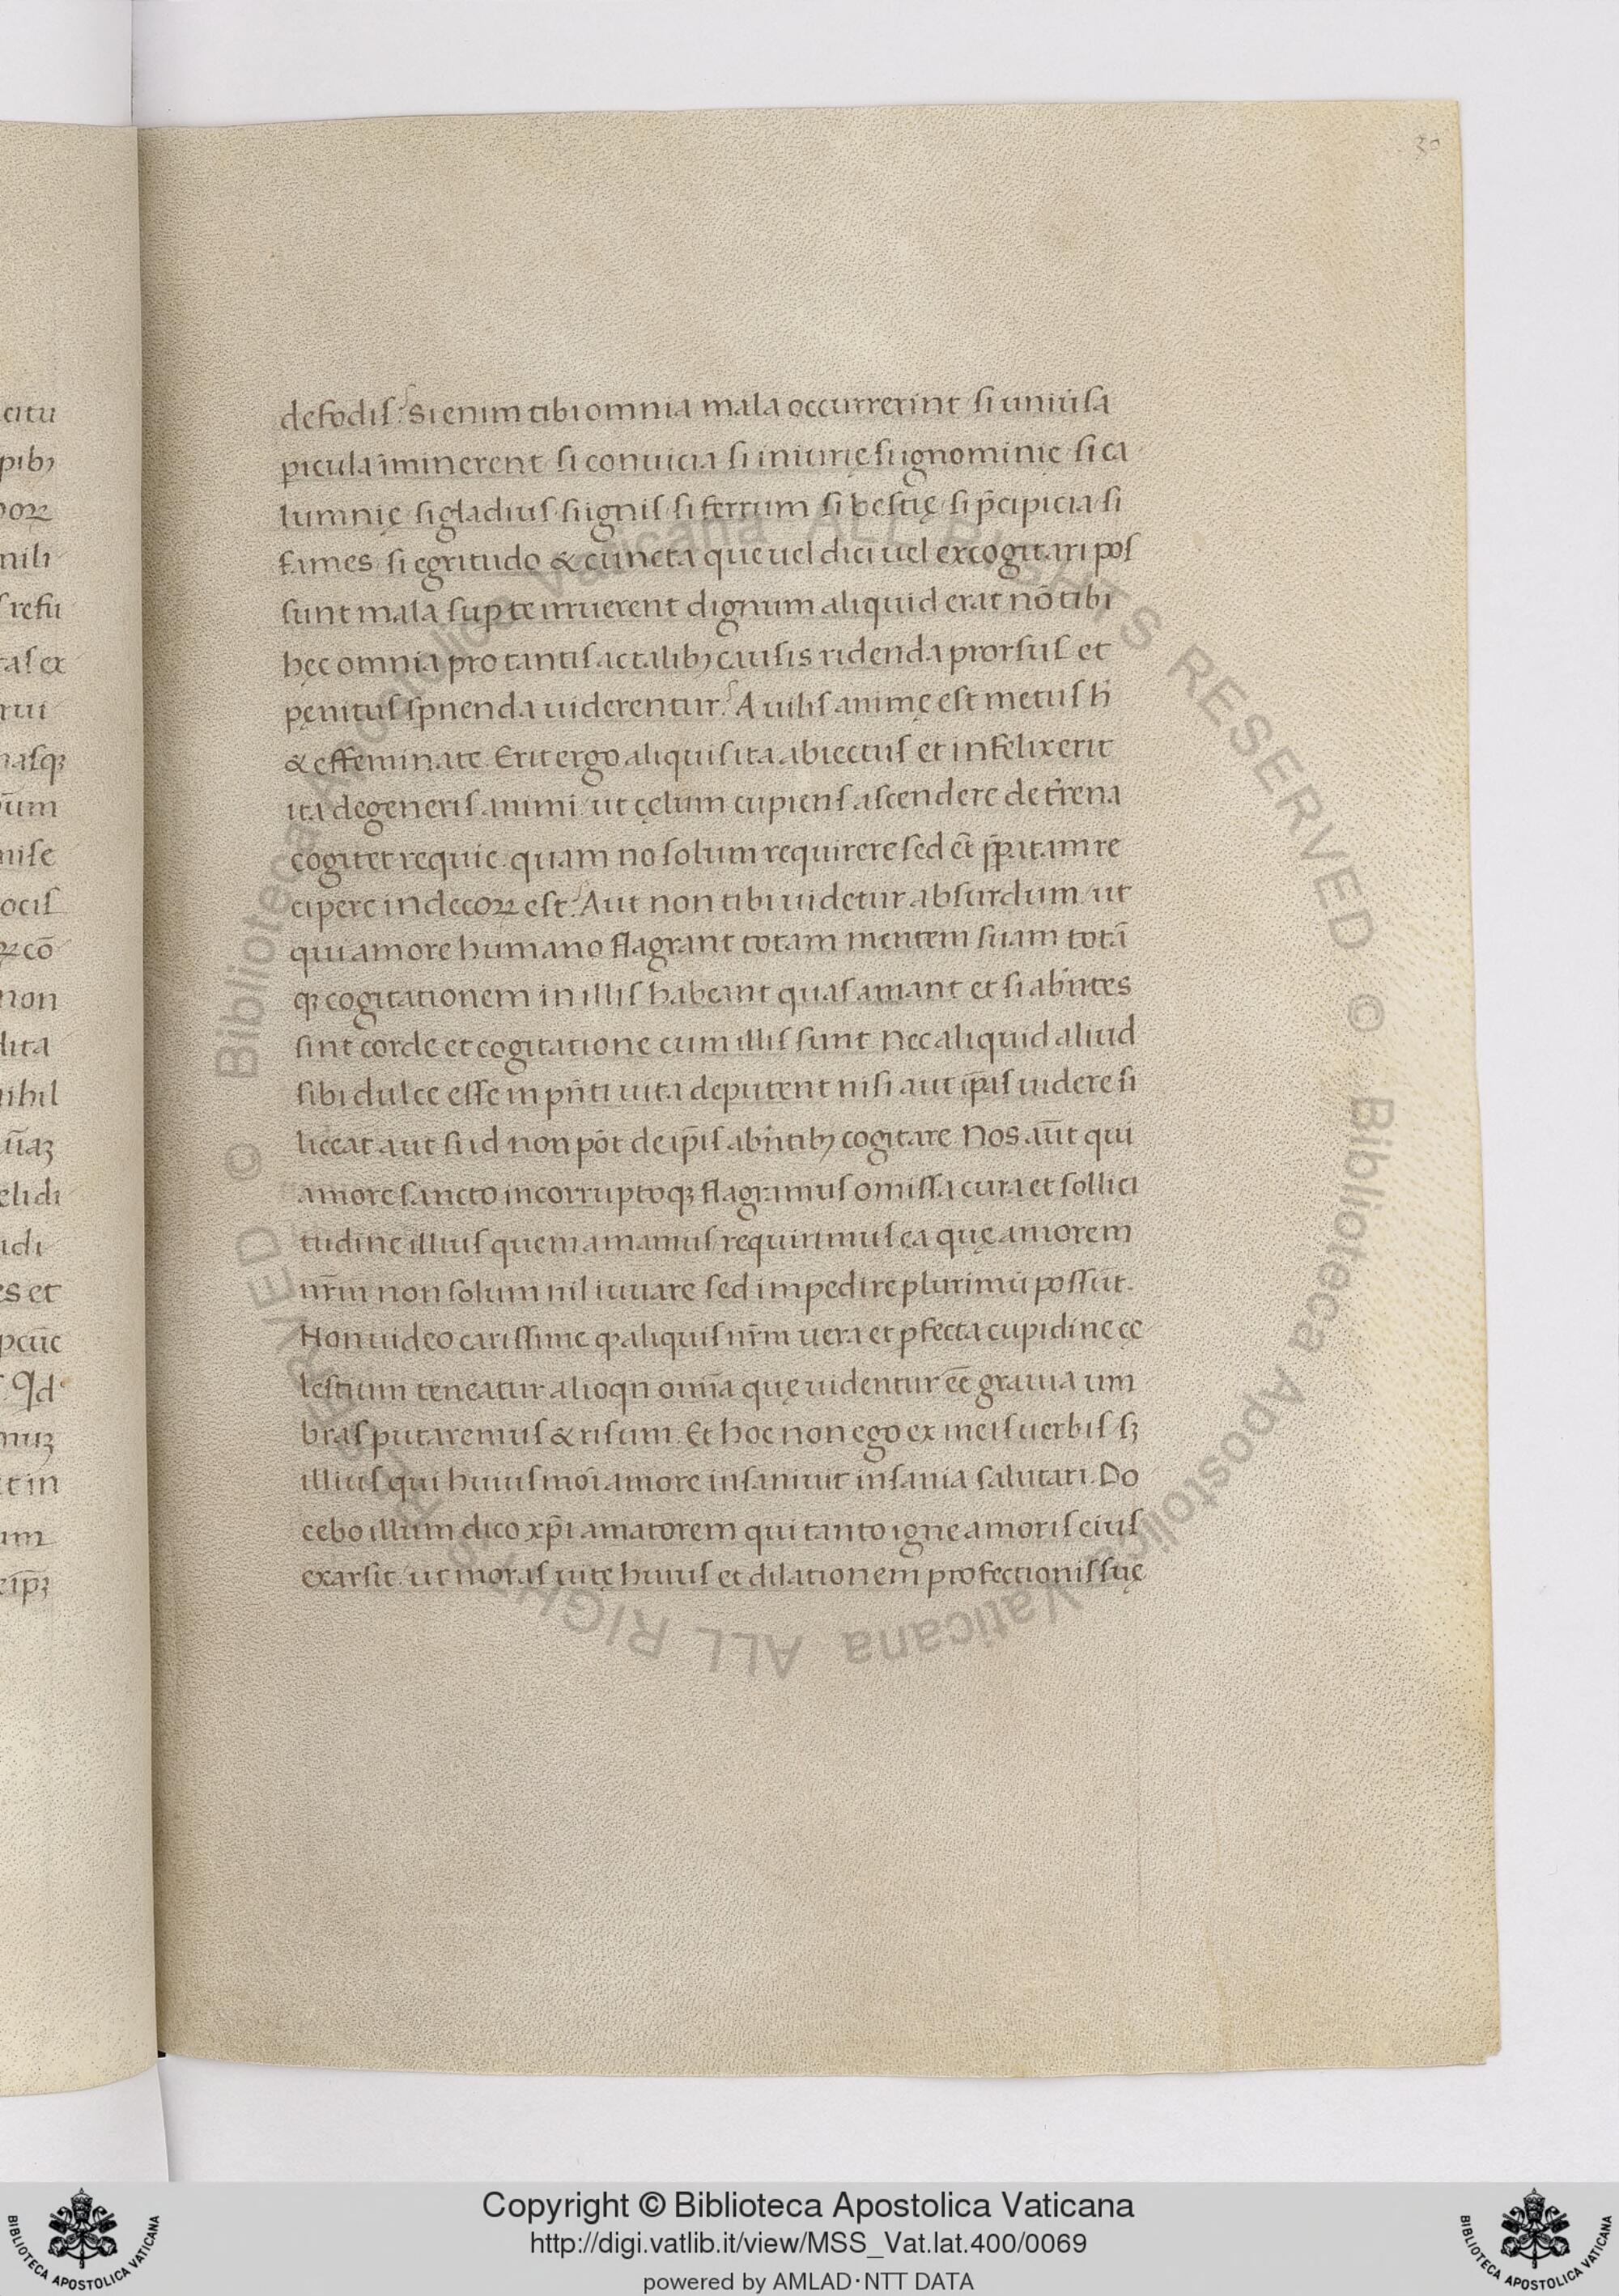 30
defodis? Si enim tibi omnia mala occurrerint si uniuersa
picula iminerent si conuicia si iniurię si ignominię si ca
lumnię si gladius si ignis si ferrum si bestię si p̄cipicia si
fames si egritudo & cuncta que uel dici uel excogitari pos
sunt mala sup te irruerent dignum aliquid erat nō tibi
hęc omnia pro tantis ac talibꝫ causis ridenda prorsus et
penitus spnenda uiderentur? A uilis animę est metus h̄
& effeminate. Erit ergo aliquis ita abiectus et infelix erit
ita degeneris animi ut cęlum cupiens ascendere de tr̄ena
cogitet requie. quam no solum requirere sed et̄ p̄patam re
cipere indecoꝝ est? Aut non tibi uidetur absurdum ut
qui amore humano flagrant totam mentem suam totā
qꝫ cogitationem in illis habeant quas amant et si abn̄tes
sint corde et cogitatione cum illis sunt Nec aliquid aliud
sibi dulce esse in pn̄ti uita deputent nisi aut ip̄as uidere si
liceat aut si id non pōt de ip̄is abn̄tibꝫ cogitare. Nos aūt qui
amore sancto incorruptoqꝫ flagramus omissa cura et sollici
tudine illius quem amamus requirimus ea quę amorem
nr̄m non solum nil iuuare sed impedire plurimū possūt.
Non uideo carissime ꝙ aliquis nr̄m uera et pfecta cupidine cę
lestium teneatur alioqn omīa quę uidentur eē grauia um
bras putaremus & risum. Et hoc non ego ex meis uerbis sꝫ
illius qui huiusmōi amore insaniuit insania salutari. Do
cebo illum dico xp̄i amatorem qui tanto igne amoris eius
exarsit. ut moras uitę huius et dilationem profectionis suę
Copyright © Biblioteca Apostolica Vaticana
http://digi.vatlib.it/view/MSS_Vat.lat.400/0069
powered by AMLAD·NTT DATA